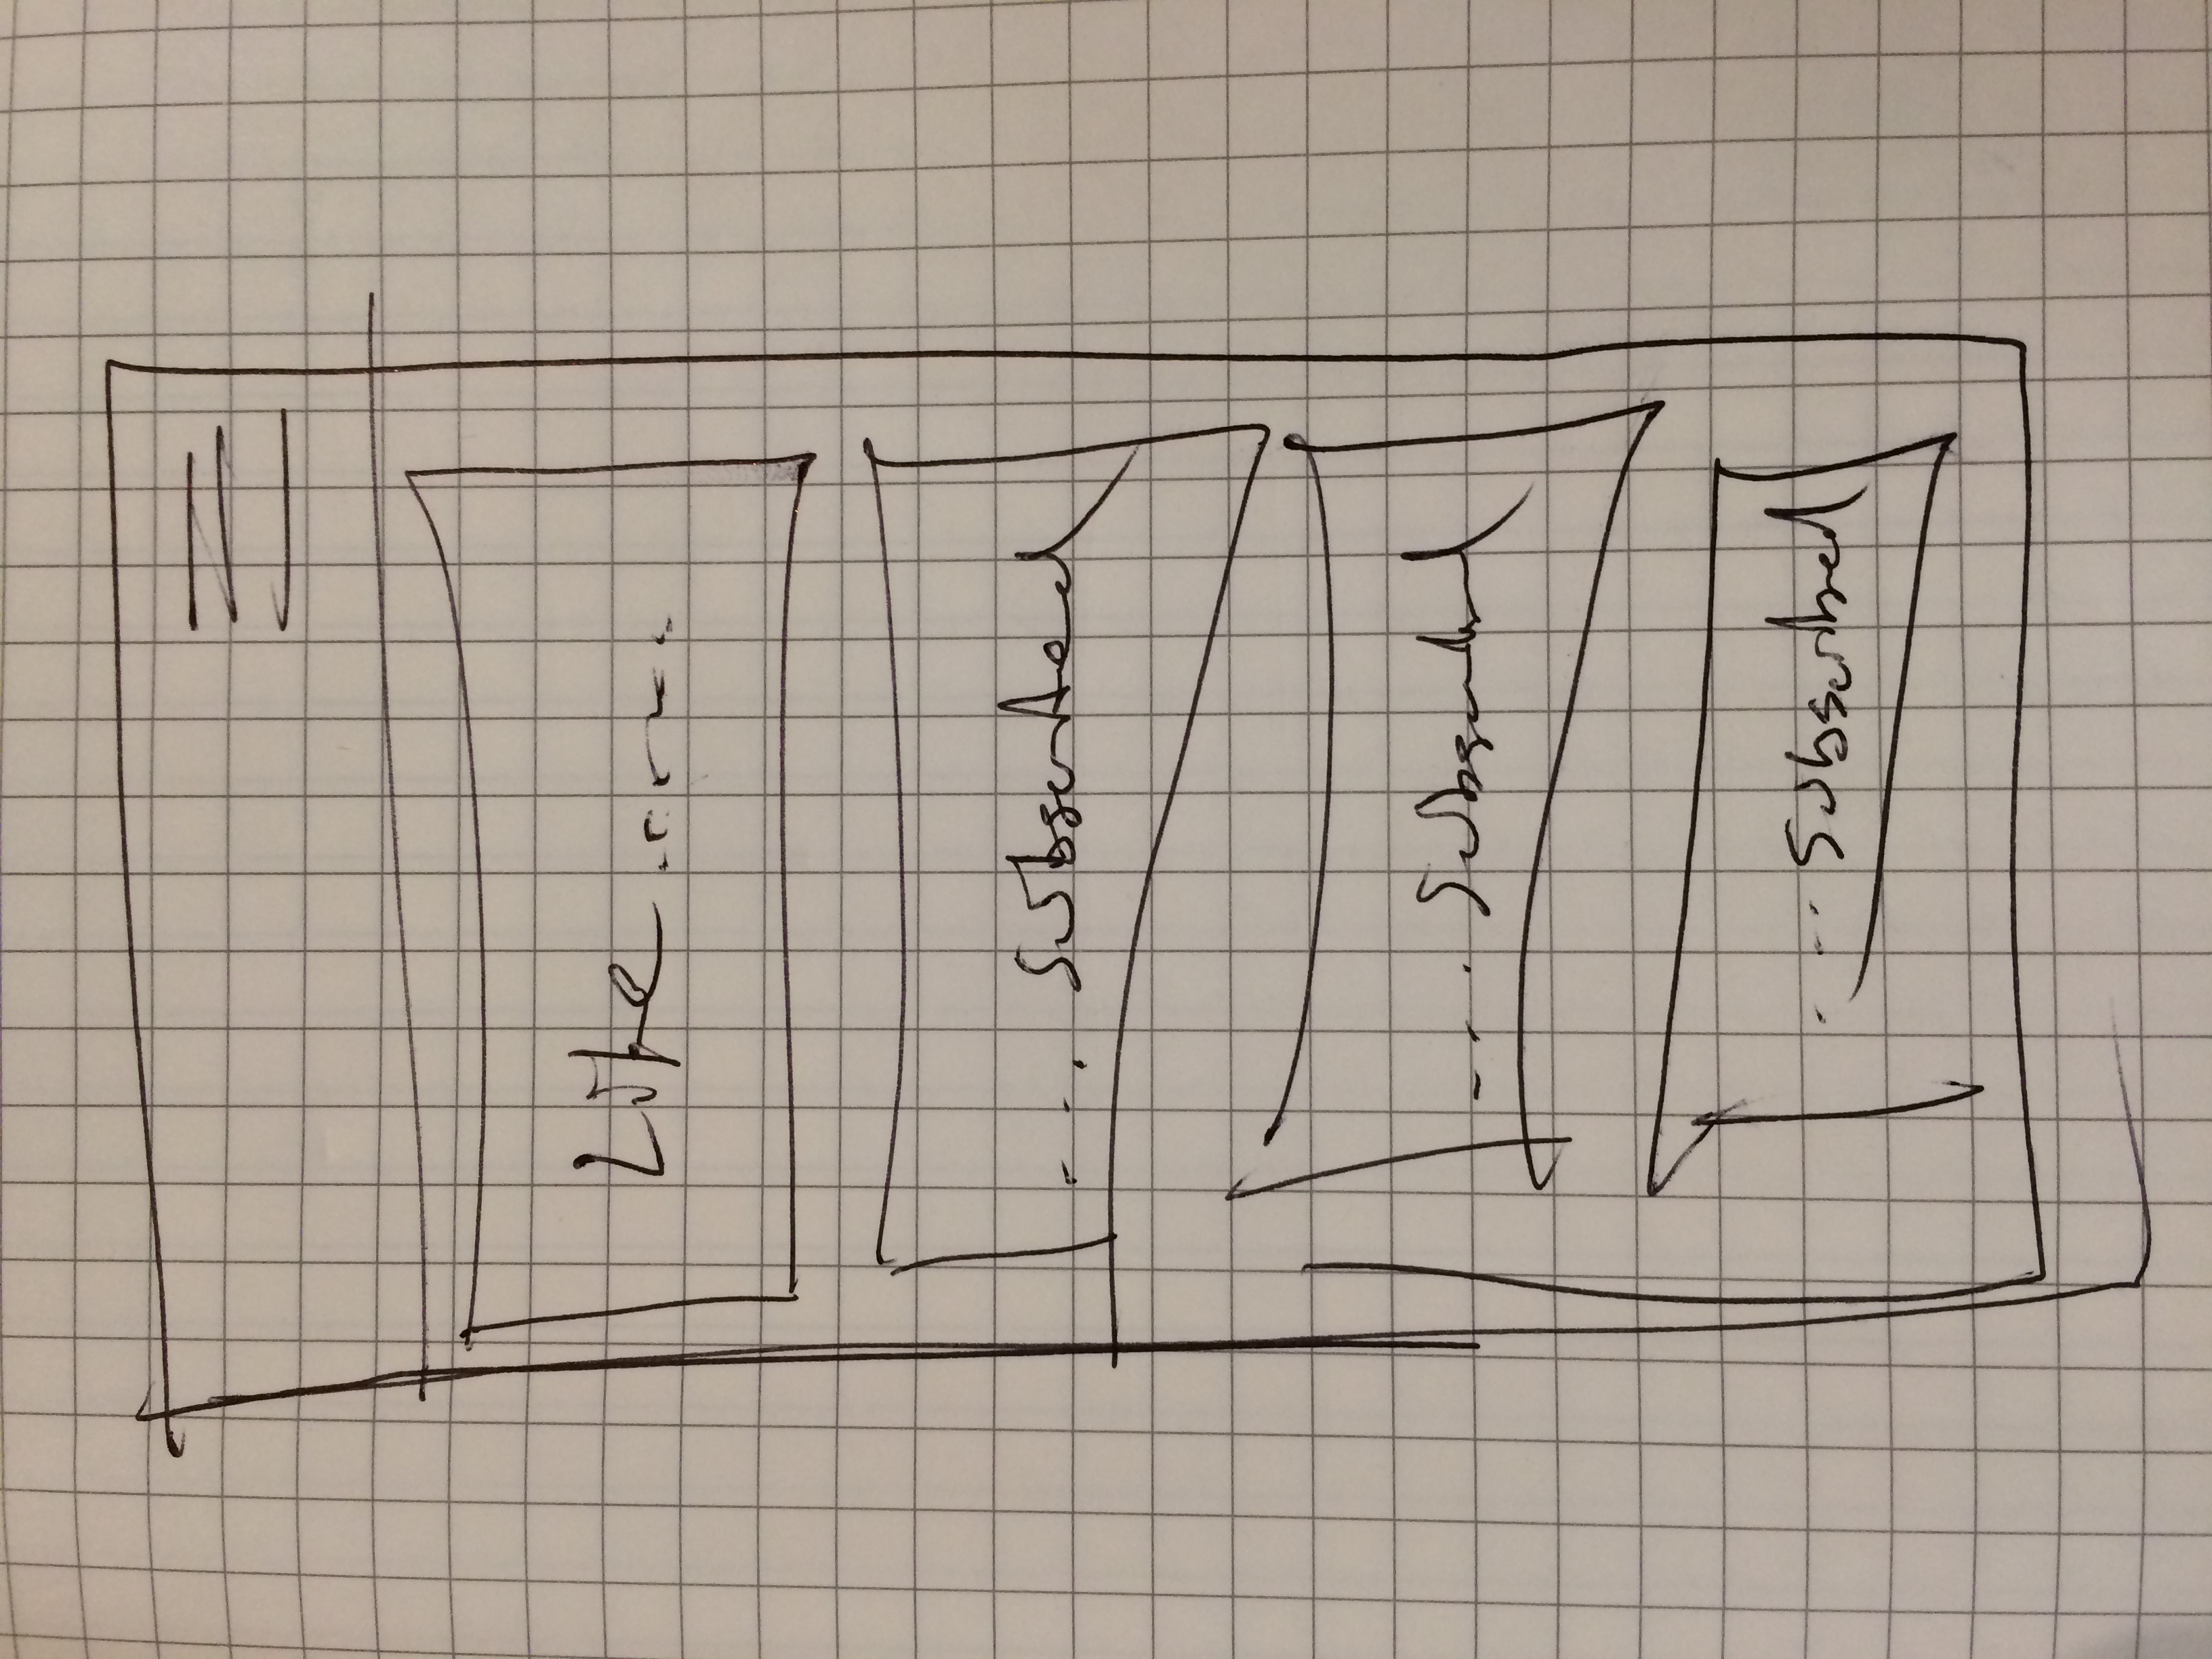 Like ......
... subscribed
.... subscribed
.... subscribed